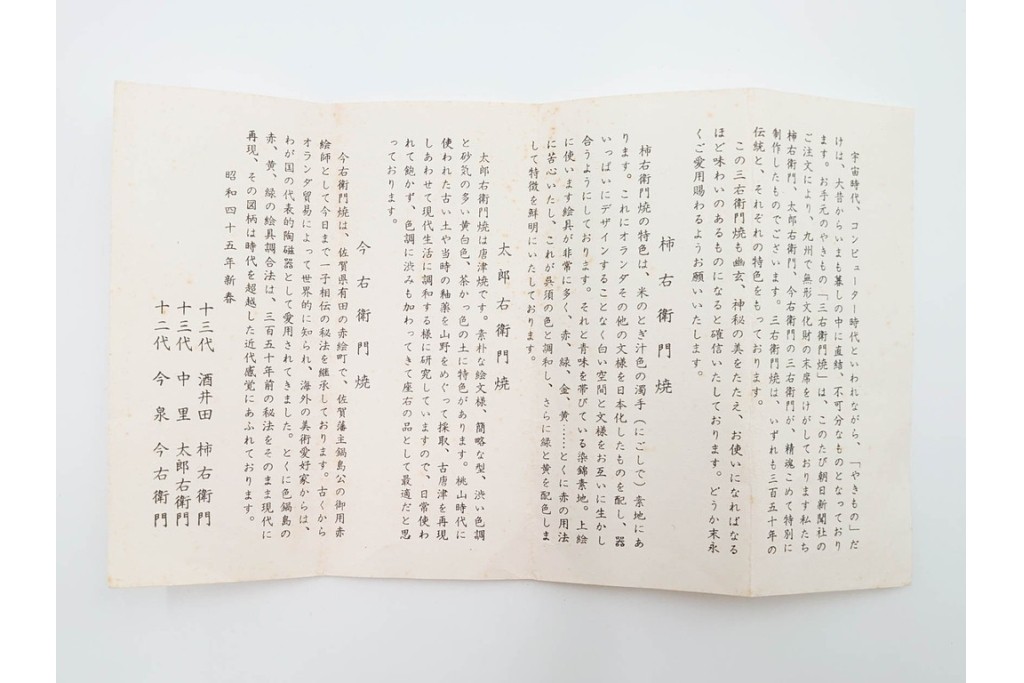 宇宙時代、コンピューター時代といわれながら、「やきもの」だ
けは、大昔からいまも暮しの中に直結、不可分なものとなっており
ます。お手元のやきもの「三右衛門焼」は、このたび朝日新聞社の
ご注文により、九州で無形文化財の末席をけがしております私たち
柿右衛門、太郎右衛門、今右衛門の三右衛門が、精魂こめて特別に
制作したものでございます。三右衛門焼は、いずれも三百五十年の
伝統と、それぞれの特色をもっております。
この三右衛門焼も幽玄、神秘の美をたたえ、お使いになればなる
ほど味わいのあるものになると確信いたしております。どうか末永
くご愛用賜わるようお願いいたします。
柿右衛門焼
柿右衛門焼の特色は、米のとぎ汁色の濁手（にごしで）素地にあ
ります。これにオランダその他の文様を日本化したものを配し、器
いっぱいにデザインすることなく白い空間と文様をお互いに生かし
合うようにしております。それと青味を帯びている染錦素地。上絵
に使います絵具が非常に多く、赤、緑、金、黄……とくに赤の用法
に苦心いたし、これが呉須の色と調和し、さらに緑と黄を配色しま
して特徴を鮮明にいたしております。
太郎右衛門焼
太郎右衛門焼は唐津焼です。素朴な絵文様、簡略な型、渋い色調
と砂気の多い黄白色、茶かっ色の土に特色があります。桃山時代に
使われた古い土や当時の釉薬を山野をめぐって採取、古唐津を再現
しあわせて現代生活に調和する様に研究していますので、日常使わ
れて飽かず、色調に渋みも加わってきて座右の品として最適だと思
っております。
今右衛門焼
今右衛門焼は、佐賀県有田の赤絵町で、佐賀藩主鍋島公の御用赤
絵師として今日まで一子相伝の秘法を継承しております。古くから
オランダ貿易によって世界的に知られ、海外の美術愛好家からは、
わが国の代表的陶磁器として愛用されてきました。とくに色鍋島の
赤、黄、緑の絵具調合法は、三百五十年前の秘法をそのまま現代に
再現、その図柄は時代を超越した近代感覚にあふれております。
昭和四十五年新春
十三代 酒井田 柿右衛門
十三代 中里 太郎右衛門
十二代 今泉 今右衛門